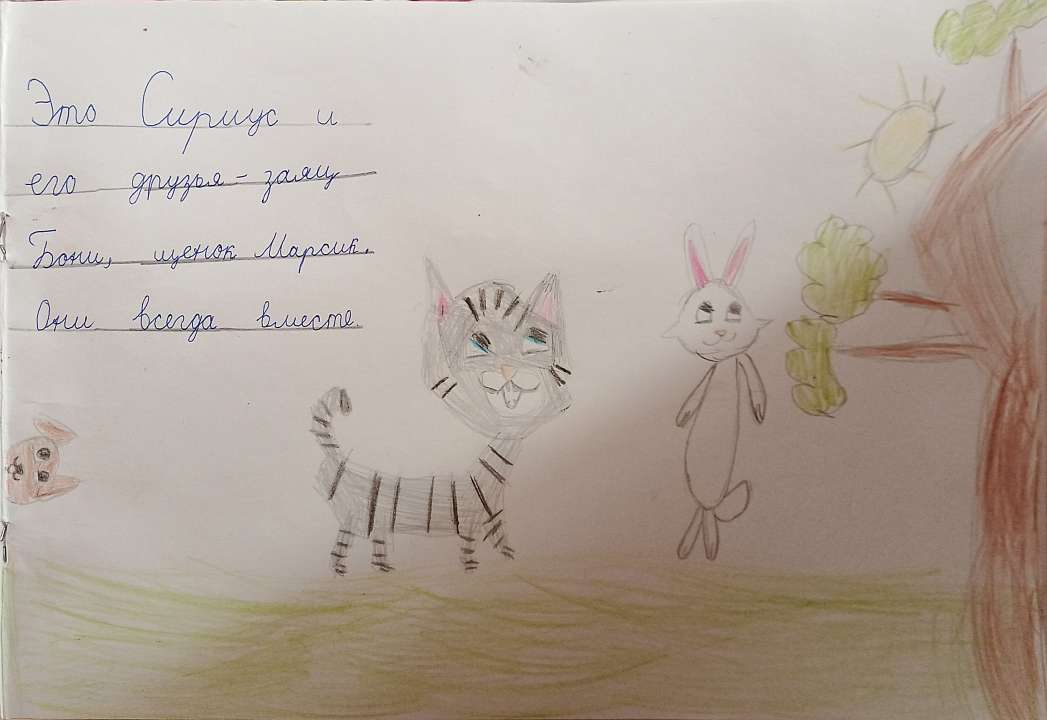 Это Сириус и
его друзья - заяц
Бони, щенок Марсик.
Они всегда вместе.